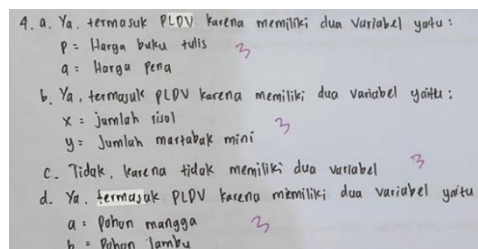 4. a. Ya. termasuk PLDV karena memiliki dua variabel yatu :
P = Harga buku tulis
3
q = Harga pena
b. Ya, termasuk PLDV karena memiliki dua variabel yaitu :
x = jumlah risol
3
y = Jumlah martabak mini
c. Tidak, karena tidak memiliki dua variabel
3
d. Ya, termasuk PLDV karena memiliki dua variabel yaitu
a = Pohon mangga
3
b = Pohon Jambu